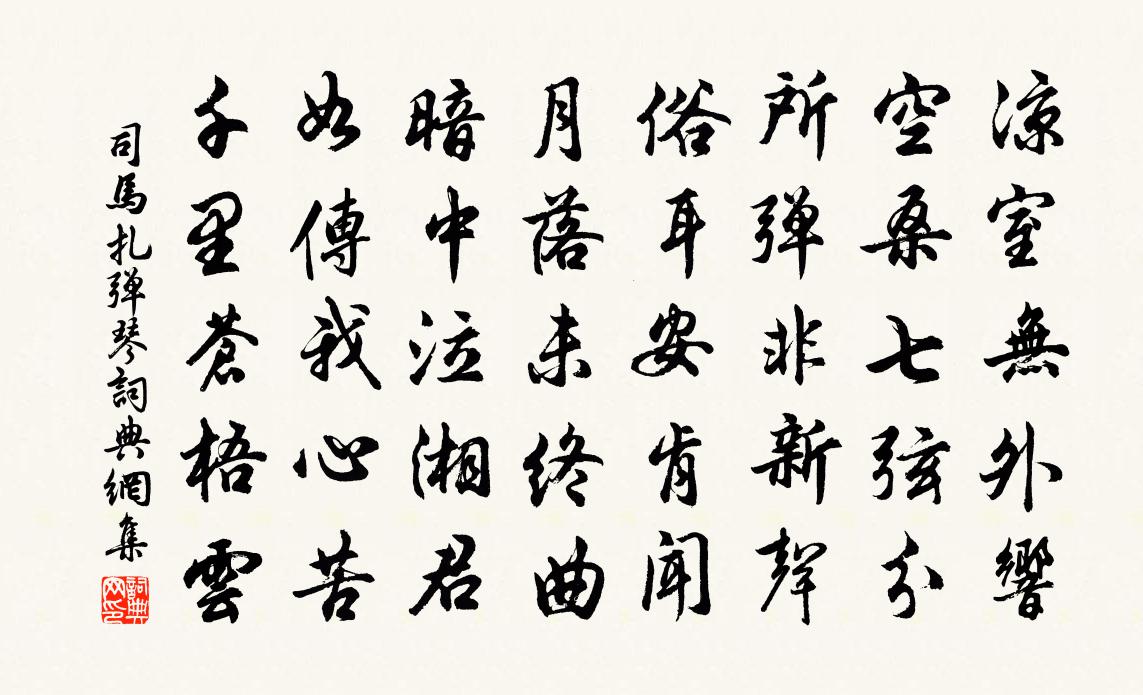 涼室無外響
空桑七弦分
所弹非新聲
俗耳安肯聞
月落未終曲
暗中泣湘君
如傳我心苦
千里蒼梧雲
司馬扎弹琴詞典網集
詞典网印